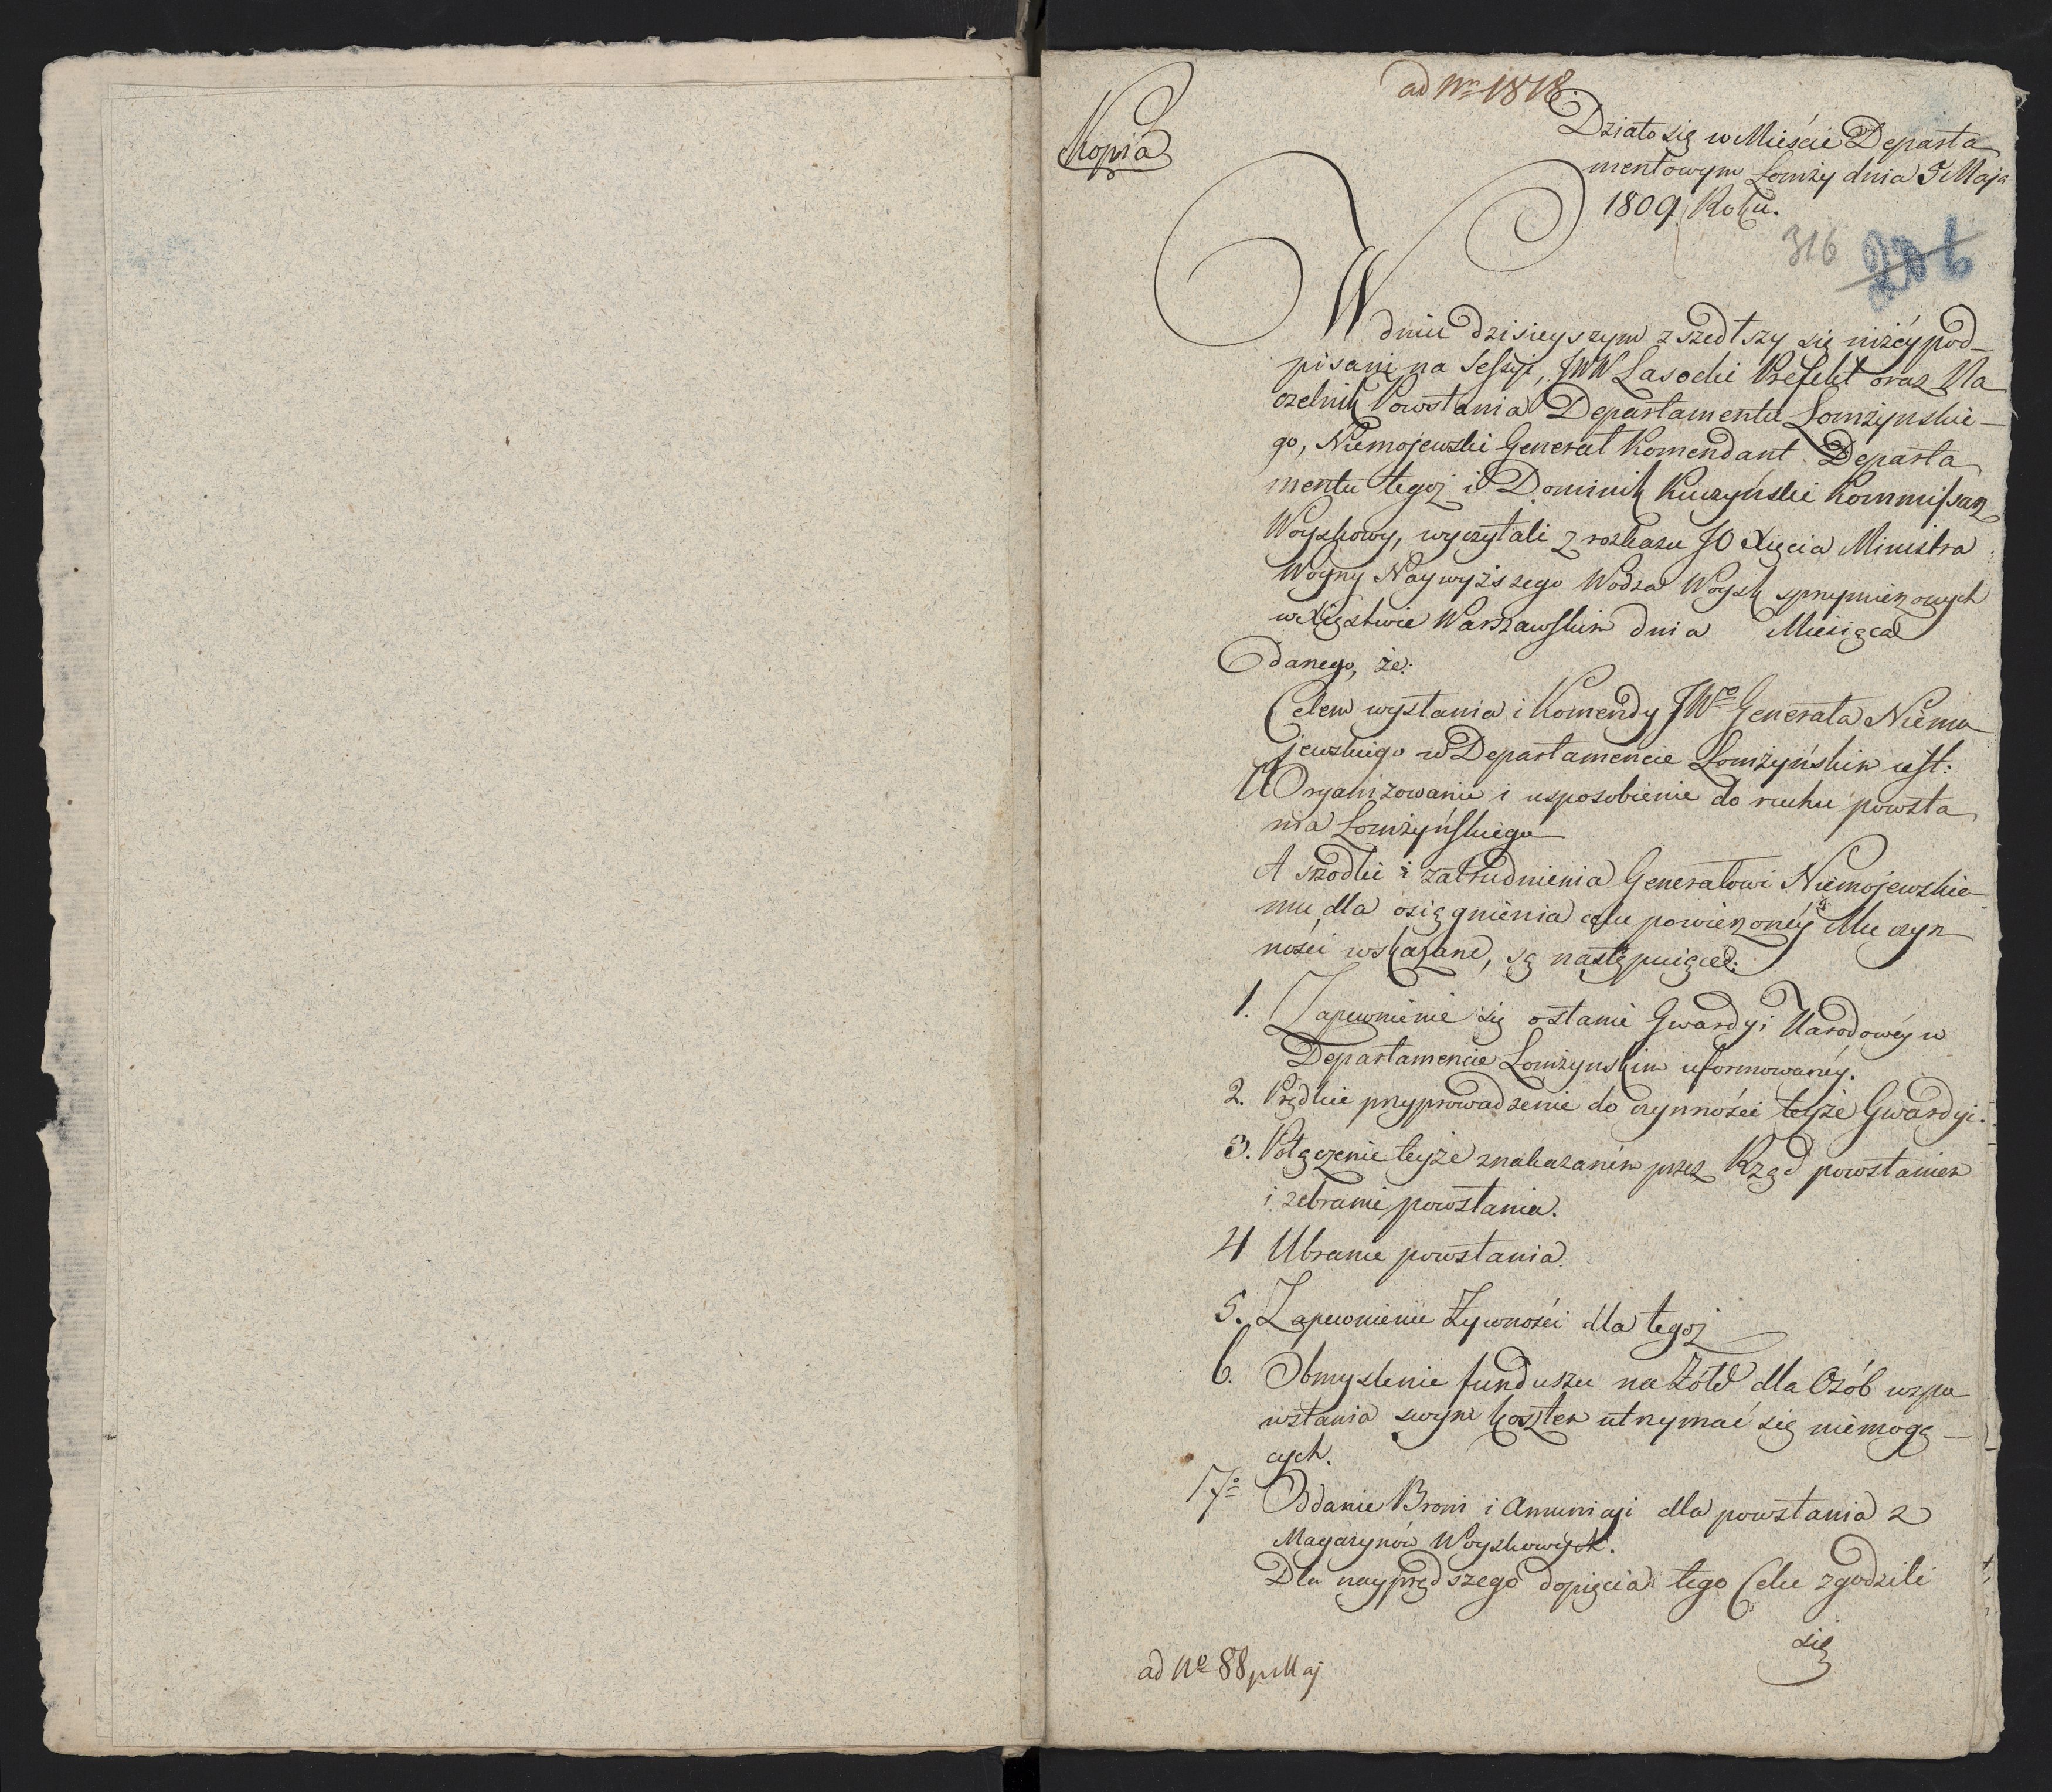 ad Nro 1818.
Kopia
Działo się w Mieście Departa
mentowym Łomży dnia 5 Maja
1809 Roku.
316 226
W dniu dzisieyszym zszedłszy się niżéy pod-
pisani na Sessyi, JWW Lasocki Prefekt oraz Na
czelnik Powstania Departamentu Łomżynskie-
go, Niemojewski Generał Komendant Departa
mentu tegoż i Dominik Kuczyński Kommissarz
Woyskowy, wyczytali z rozkazu JO Xięcia Ministra
Woyny Naywyższego Wodza Woysk sprzymierzonych
w Xięstwie Warszawskim dnia Miesiąca
danego, że:
Celem wysłania i Komendy JWgo Generała Niemo
jewskiego w Departamencie Łomżyńskim iest:
Organizowanie i usposobienie do ruchu powsta
nia Łomżyńskiego
A srzodki i zatrudnienia Generałowi Niemojewskie-
mu dla osiągnienia celu powierzonéy Mu czyn
ności wskazane, są następuiące:
1. Zapewnienie się o stanie Gwardyi Narodowéy w
Departamencie Łomżynskim uformowanéy.
2. Prędkie przyprowadzenie do czynności teyże Gwardyi.
3. Połączenie teyże z nakazaném przez Rząd powstaniem
i zebranie powstania.
4 Ubranie powstania.
5. Zapewnienie Żywności dla tegoż
6. Obmyslenie funduszu na Żołd dla Osób w spo
wstania swym kosztem utrzymać się niemogą-
cych.
7o Oddanie Broni i Amunicyi dla powstania z
Magazynów Woyskowych.
Dla nayprędszego dopięcia tego Celu zgodzili
się
ad No 88 p Maj